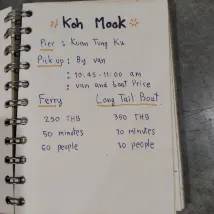 Koh Mook
Pier : Kuan Tung Ku
Pick up : By van
: 10.45-11.00 am
: van and boat Price
Ferry Long Tail Boat
250 THB 350 THB
50 mindes 30 minutes
60 people 30 people